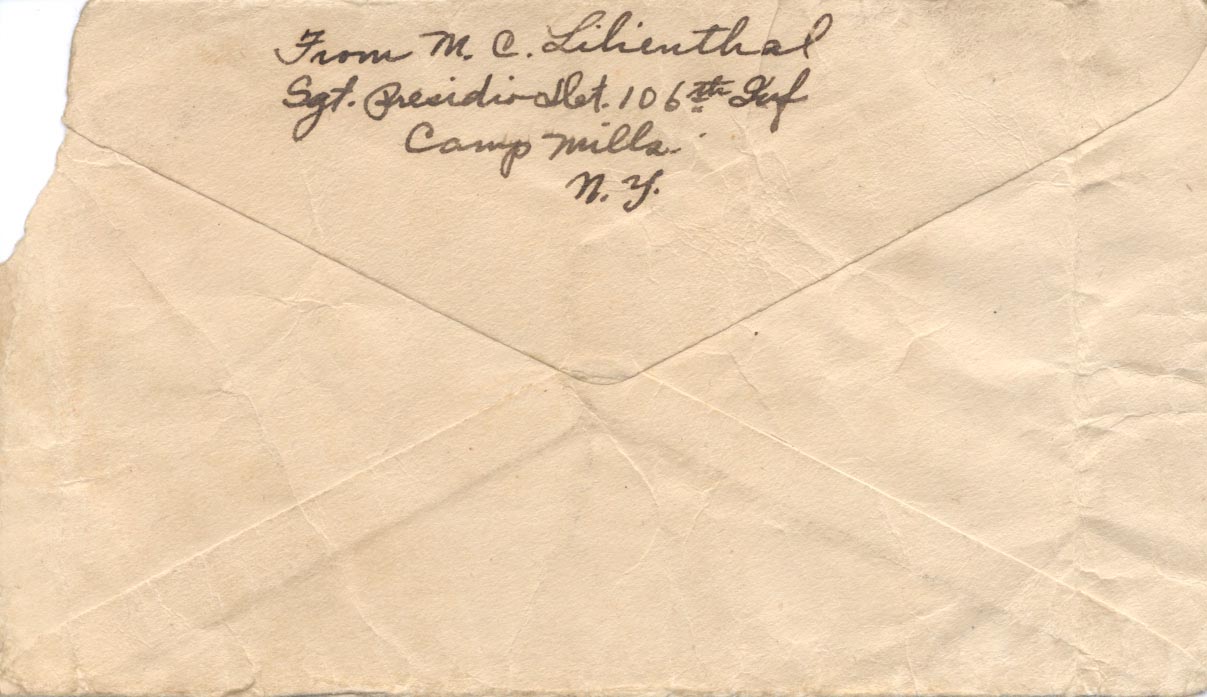 From M. C. Lilienthal
Sgt. Presidio Det. 106th Inf
Camp Mills.
N. Y.